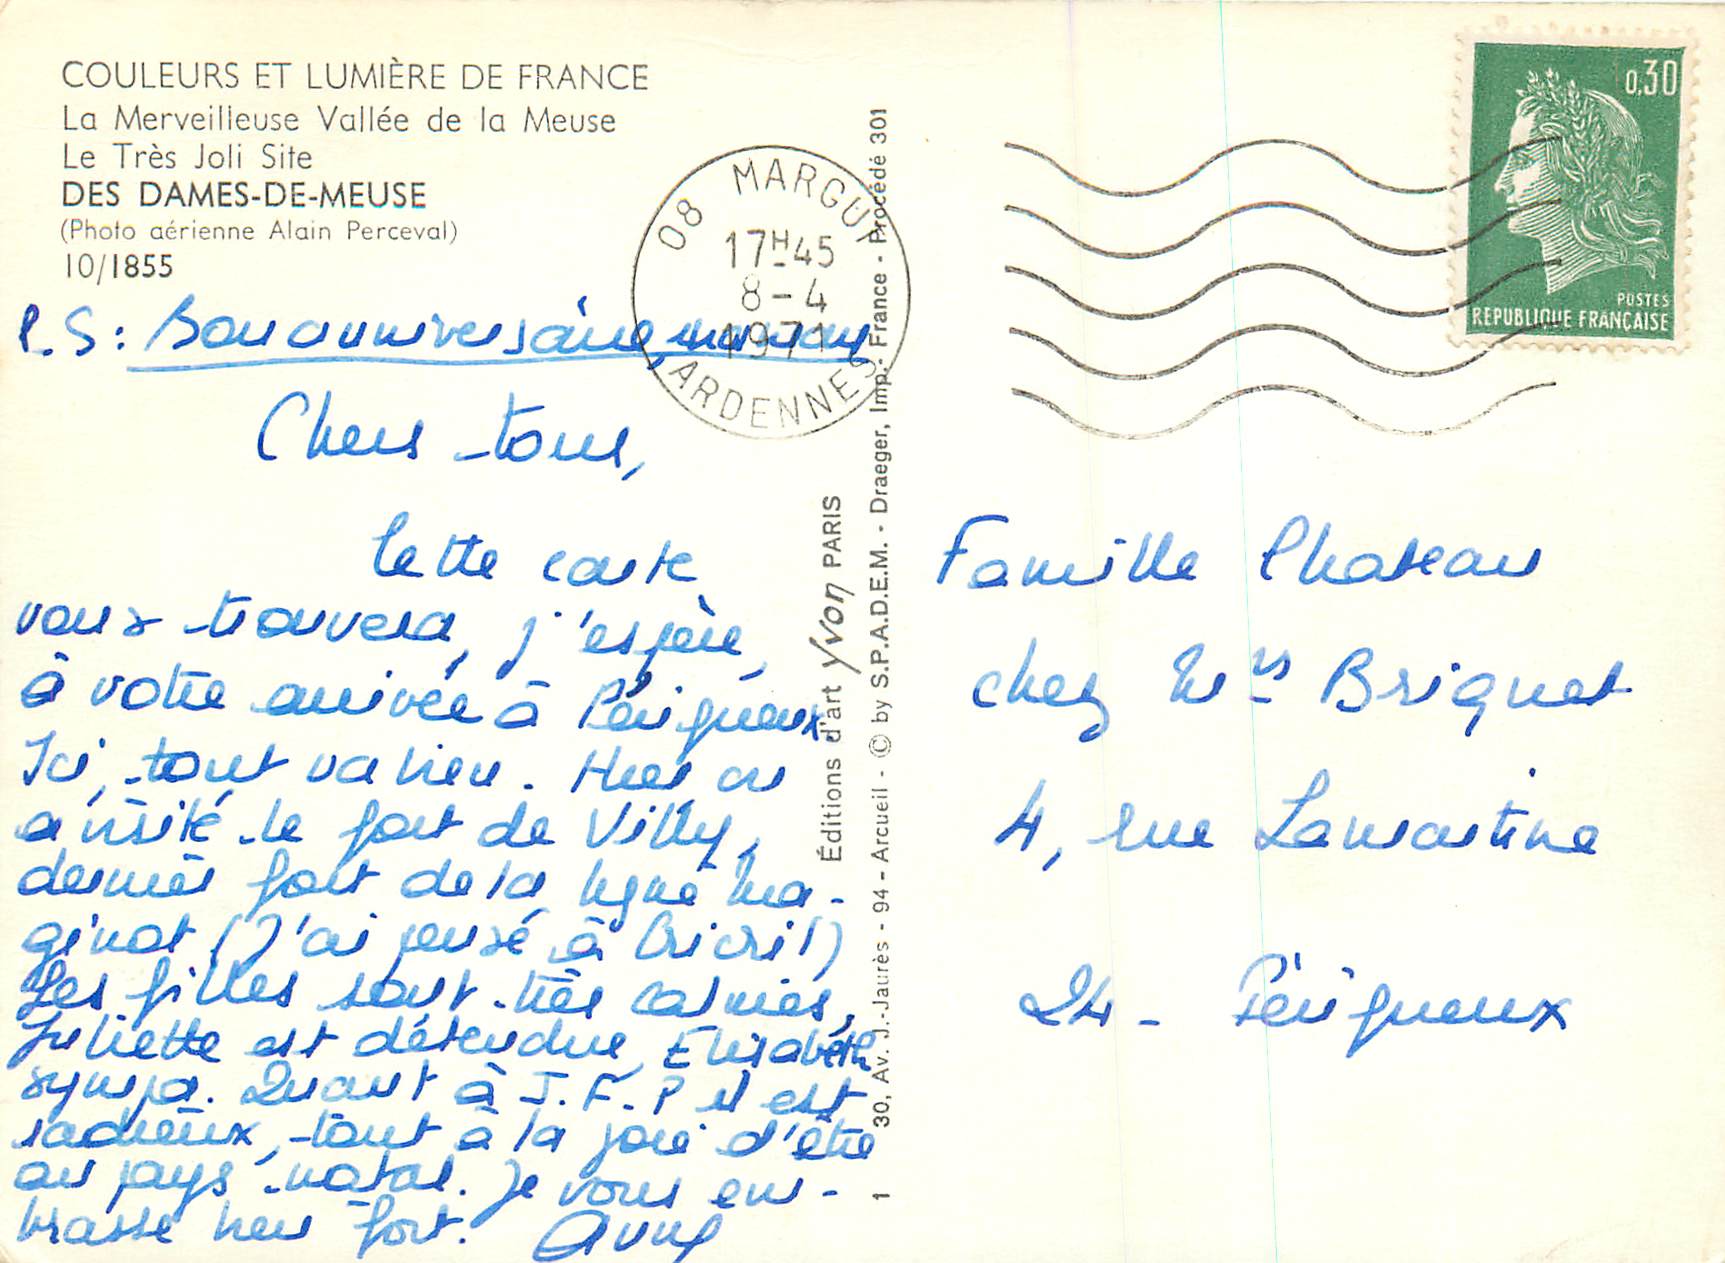 COULEURS ET LUMIÈRE DE FRANCE
La Merveilleuse Vallée de la Meuse
Le Très Joli Site
DES DAMES-DE-MEUSE
(Photo aérienne Alain Perceval)
10/1855
P.S: Bon anniversaire, maman
Chers tous,
Cette carte
vous trouvera, j'espère,
à votre arrivée à Périgueux
Ici, tout va bien. Hier on
a visité le fort de Villy,
dernier fort de la ligne Ma-
ginot (J'ai pensé à Cricri!)
Les filles sont très calmes,
Juliette est détendue, Elisabeth
sympa. Quant à J.F.P il est
radieux, tout à la joie d'être
au pays natal. Je vous em-
brasse bien fort. Anny
08 MARGUT
17H45
8-4
1971
ARDENNES
Éditions d'art Yvon PARIS
1 30, Av. J.-Jaurès - 94 - Arcueil - © by S.P.A.D.E.M. - Draeger, Imp. - France - Procédé 301
0,30
POSTES
REPUBLIQUE FRANÇAISE
Famille Chateau
chez Mrs Briquet
4, rue Lamartine
24 - Périgueux